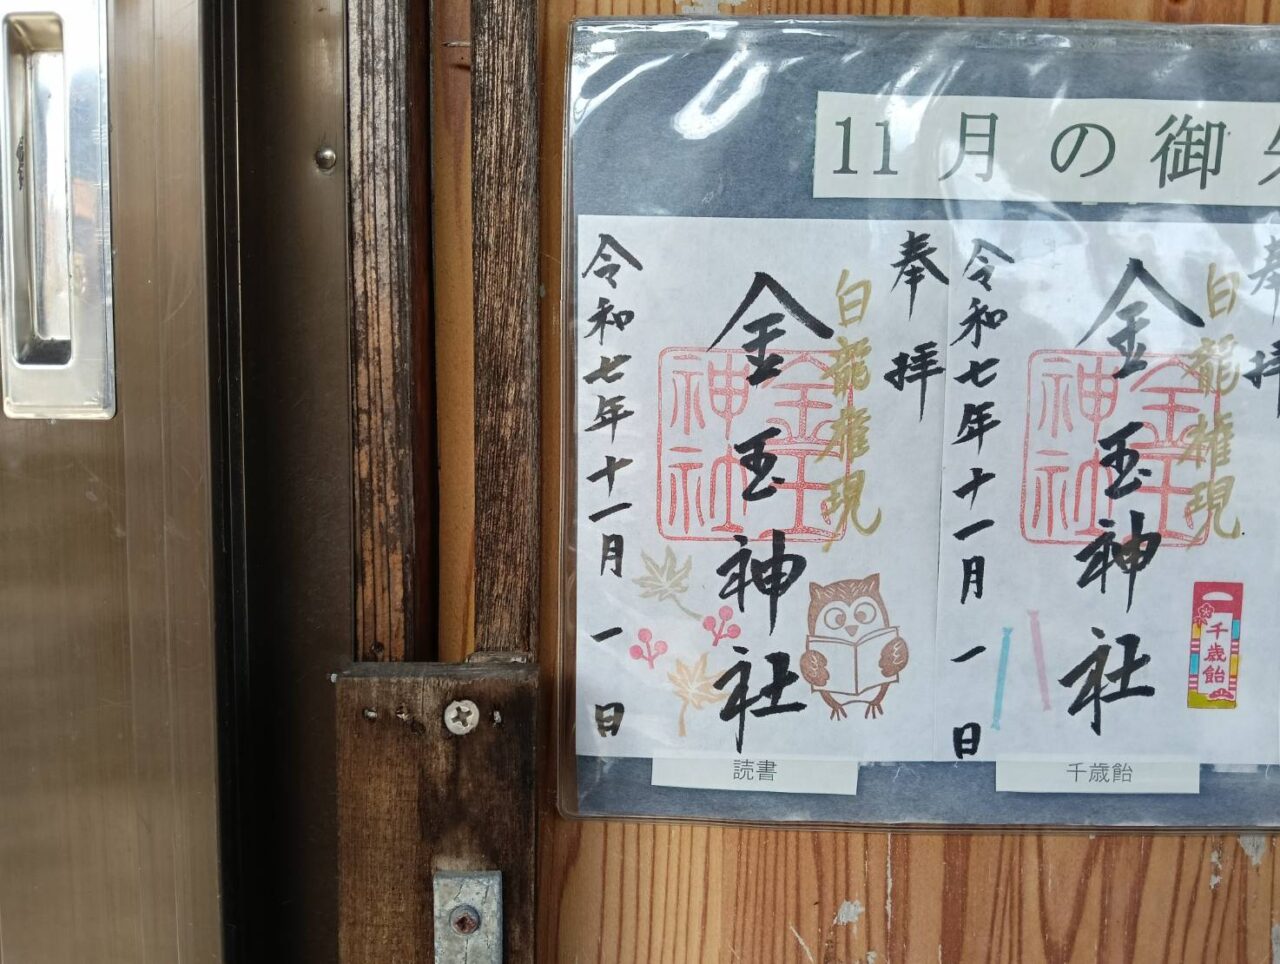 11月の御
奉拝
白龍権現
金玉神社
金玉神社
令和七年十一月一日
読書
奉拝
白龍権現
金玉神社
金玉神社
令和七年十一月一日
千歳飴
千歳飴